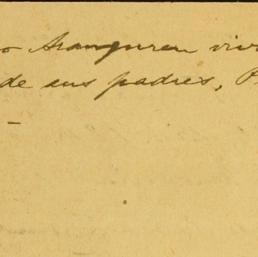 o Aranguren viv
de sus padres, P
-